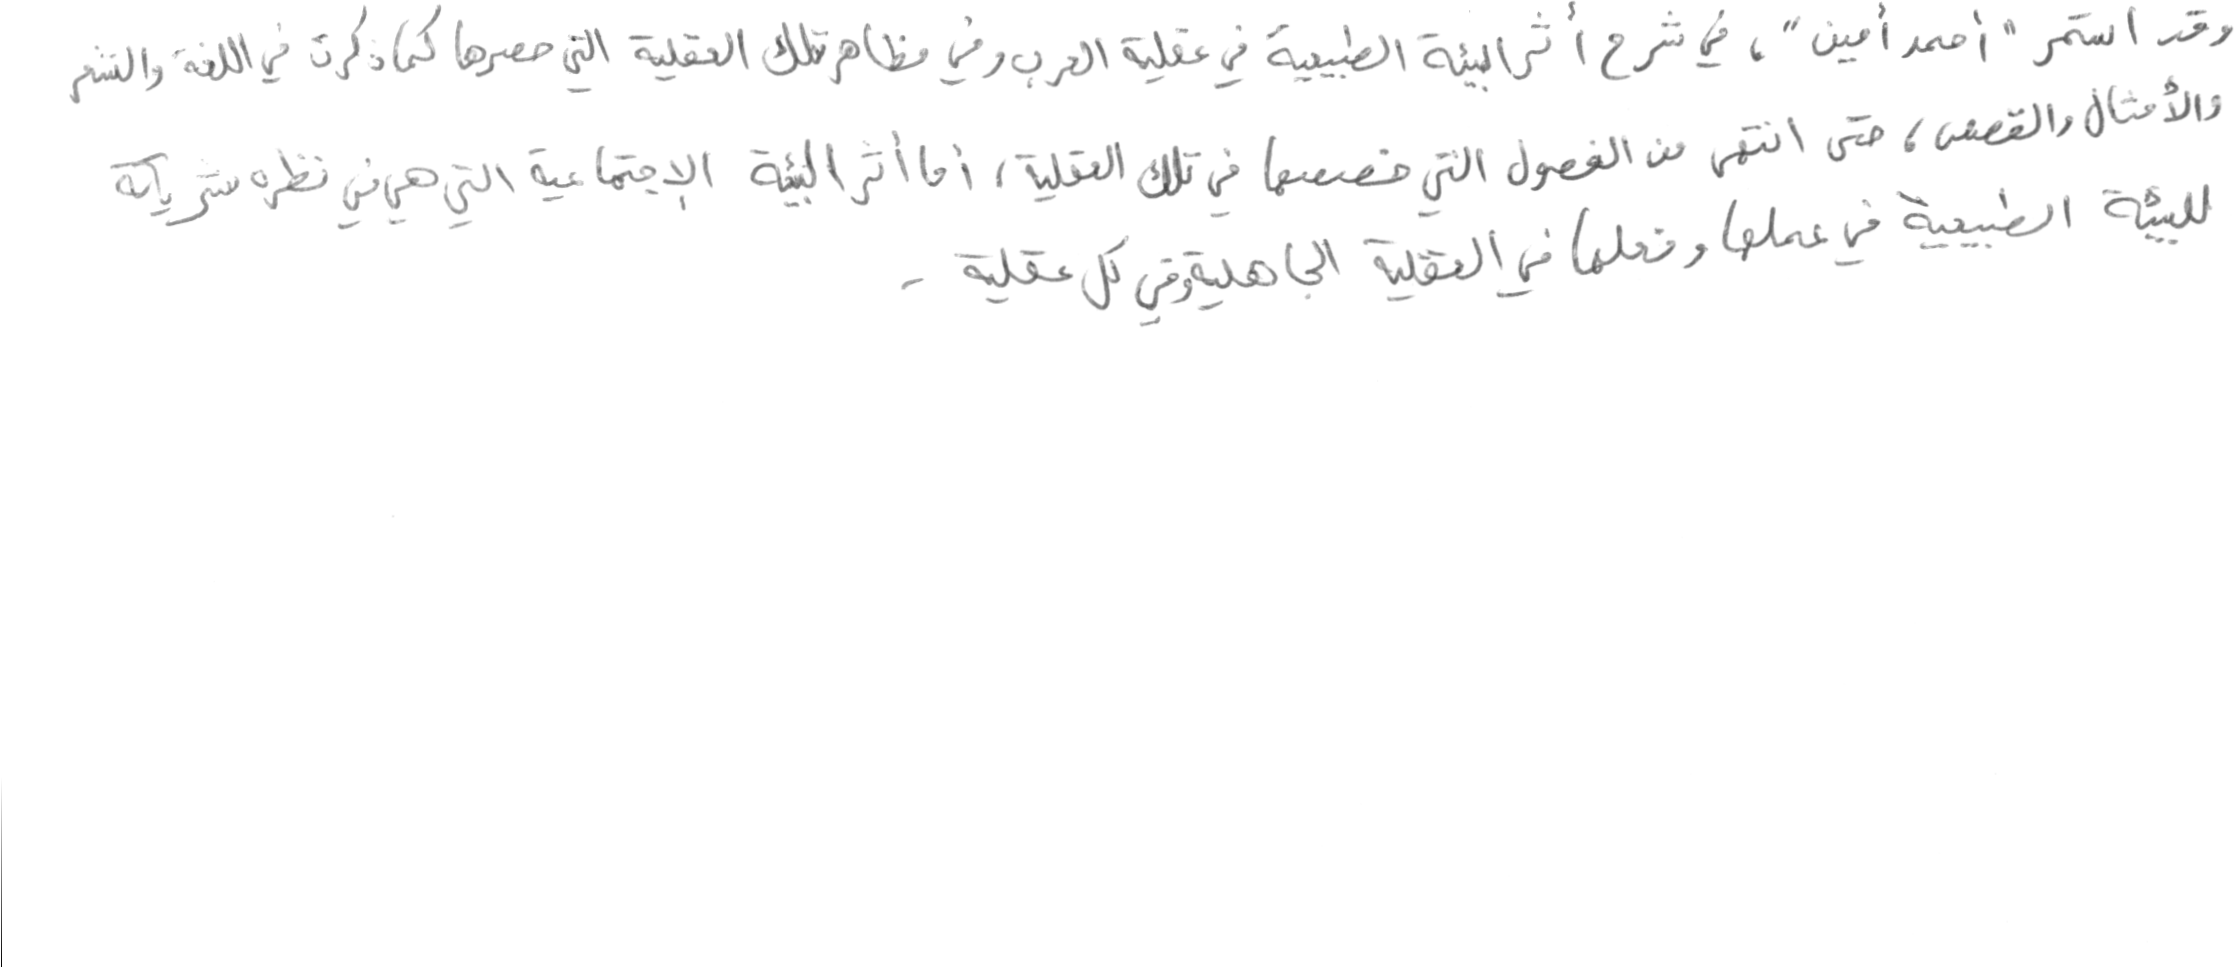 وقد استمر "أحمد أمين"، في شرح أثر البيئة الطبيعية في عقلية العرب وفي مظاهر تلك العقلية التي حصرها كما ذكرت في اللغة والشعر
والأمثال والقصص، حتى انتهى من الفصول التي خصصها في تلك العقلية، أما أثر البيئة الإجتماعية التي هي في نظره شريكة
للبيئة الطبيعية في عملها وفعلها في العقلية الجاهلية وفي كل عقلية -